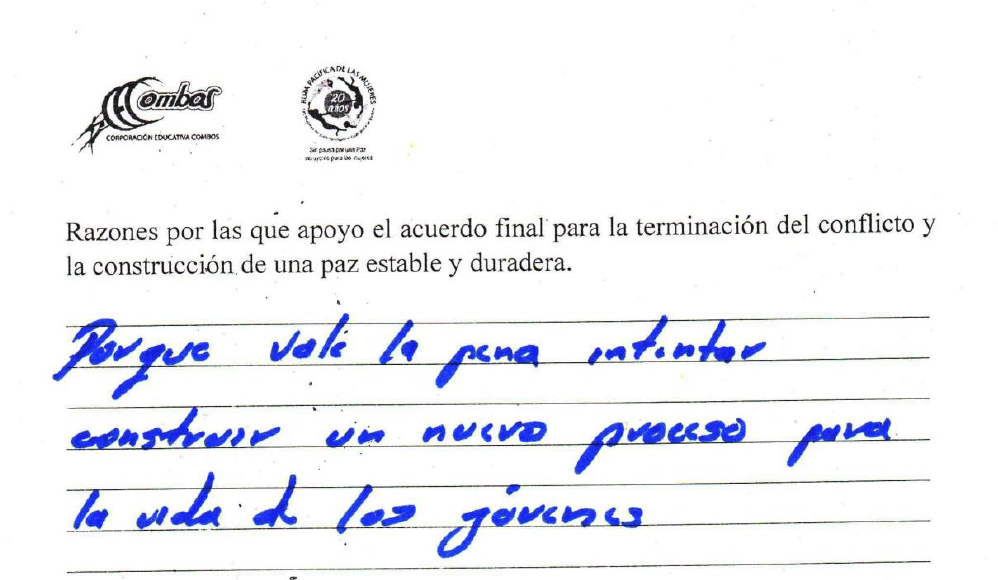 Combos
CORPORACIÓN EDUCATIVA COMBOS
RUTA PACIFICA DE LAS MUJERES
20 años
Razones por las que apoyo el acuerdo final para la terminación del conflicto y
la construcción de una paz estable y duradera.
Porque vale la pena intentar
construir un nuevo proceso para
la vida de los jóvenes